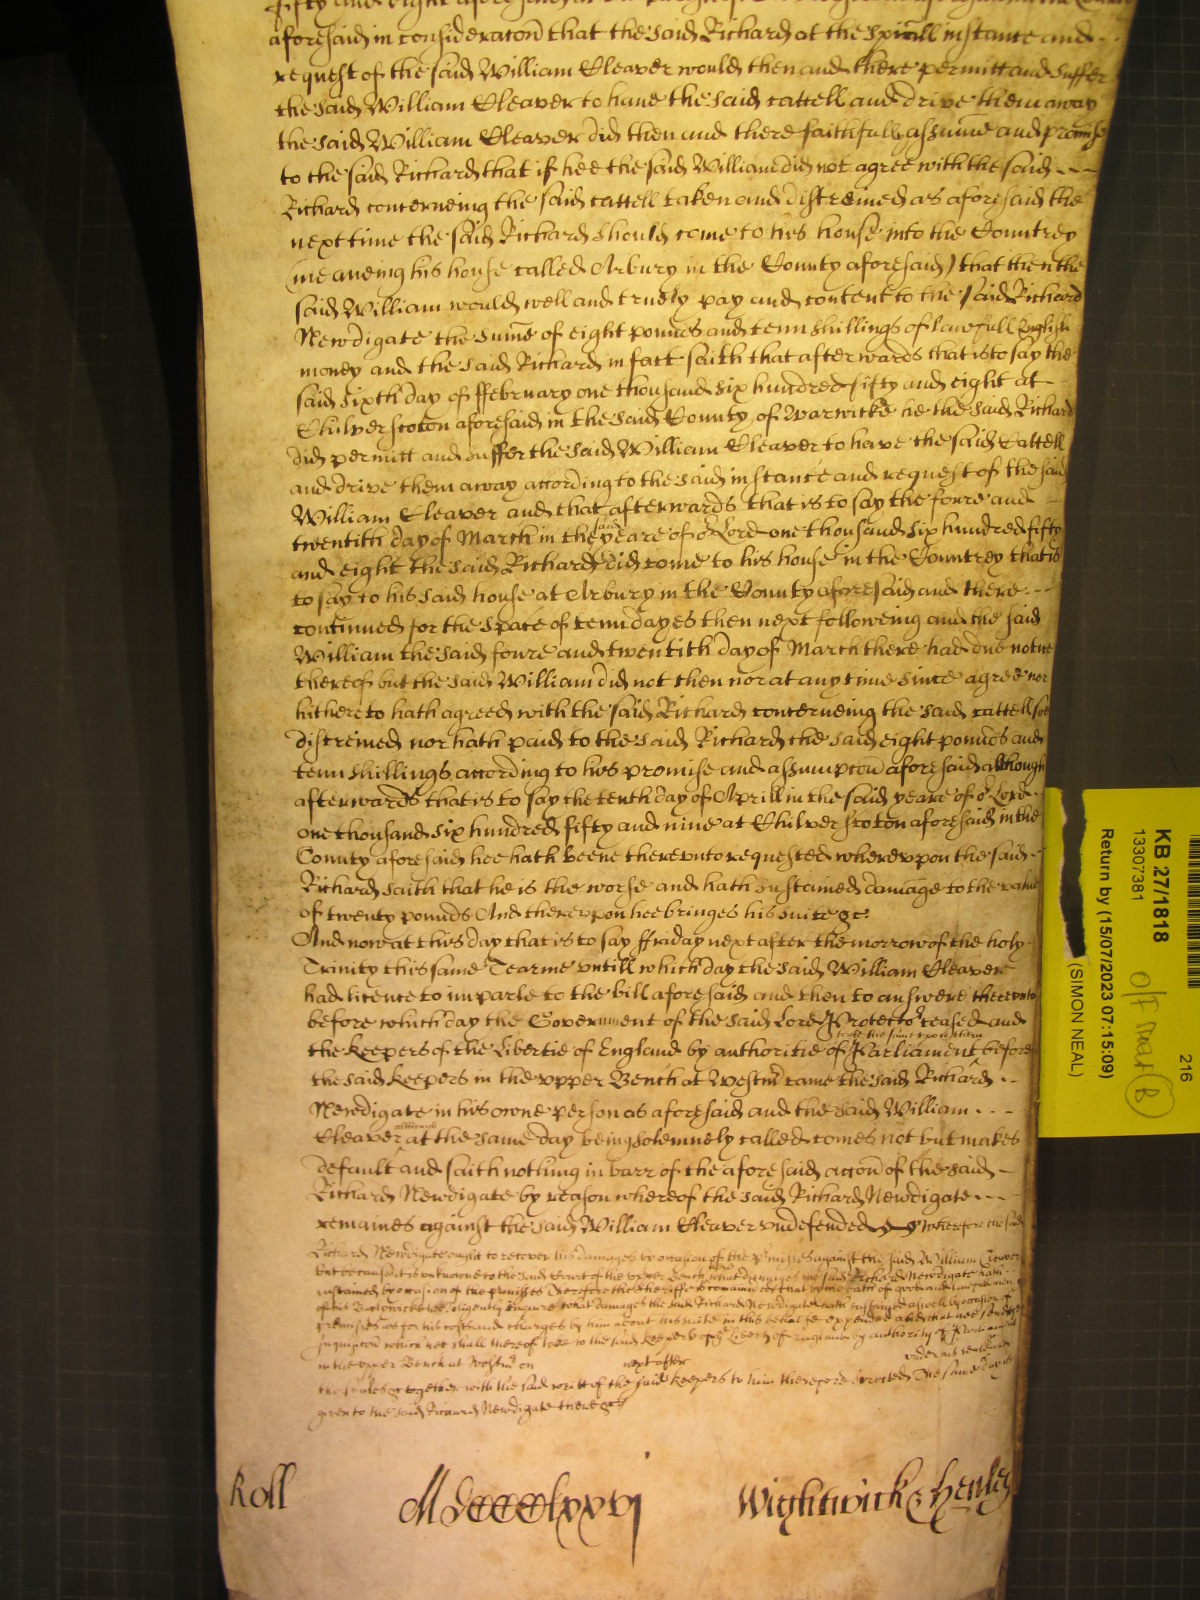 fifty and eight aforesaid
aforesaid in consideracon that the said Richard at the speciall instance and
request of the said William Cleaver would then and there permitt and suffer
the said William Cleaver to have the said cattell and drive them away
the said William Cleaver did then and there faithfully assume and promise
to the said Richard that if hee the said William did not agree with the said
Richard concerneing the said cattell taken and distreined as aforesaid the
next time the said Richard should come to his house into the Countrey
(meaneing his house called Arbury in the County aforesaid) that then the
said William would well and truely pay and content to the said Richard
Newdigate the sume of eight pounds and tenn shillings of lawfull English
money and the said Richard in fact saith that afterwards that is to say the
said sixth day of ffebruary one thousand six hundred fifty and eight at
Chilverscoton aforesaid in the said County of Warwicke he the said Richard
did permitt and suffer the said William Cleaver to have the said Cattell
and drive them away according to the said instance and request of the said
William Cleaver and that afterwards that is to say the foure and
twentith day of March in the said yeare of or Lord one thousand six hundred fifty
and eight the said Richard did come to his house in the Countrey that is
to say to his said house at Arbury in the County aforesaid and there
continued for the space of tenn dayes then next followeing and the said
William the said foure and twentith day of March there had due notice
thereof but the said William did not then nor at any time since agree nor
hitherto hath agreed with the said Richard concerneing the said cattell soe
distreined nor hath paid to the said Richard the said eight pounds and
tenn shillings according to his promise and assumpcon aforesaid although
afterwards that is to say the tenth day of Aprill in the said yeare of or Lord
one thousand six hundred fifty and nine at Chilverscoton aforesaid in the
County aforesaid hee hath beene thereunto requested whereuppon the said
Richard saith that he is the worse and hath sustained damage to the value
of twenty pounds And thereuppon hee bringes his suite &c
And now at this day that is to say ffriday next after the morrow of the holy
Trinity this same Tearme untill which day the said William Cleaver
had licence to imparle to the bill aforesaid and then to answere thereunto
before which day the Government of the said Lord Protector ceased and
the keepers of the libertie of England by authoritie of Parliament before
the said keepers in the upper Bench at Westmr came the said Richard
Newdigate in his owne person as aforesaid and the said William
Cleaver at the same day being solemnely called comes not but makes
default and saith nothing in barr of the aforesaid accon of the said
Richard Newdigate by reason whereof the said Richard Newdigate
remaines against the said William Cleaver undefended Wherefore the said
Richard Newdigate ought to recover his damages by occasion of the pmisses against the said William Cleaver
but because it is unknowne to the said Court of the upper Bench what damages the said Richard Newdigate hath
sustained by occasion of the premisses Therefore the sheriffe is comanded that by the oath of good and lawfull men
of his Bayliwicke hee diligently inquire what damages the said Richard Newdigate hath sustained aswell by occasion of
premisses as for his costs and charges by him about his suite in this behalfe expended and that hee send
Inquisicon which hee shall thereof take to the said keepers of the liberty of England by authority of Parliament
in the upper Bench at Westmr on next after under his seale and
the seales together with the said writt of the said keepers to him therefore directed The same day is
given to the said Richard Newdigate there &c
Roll MdCCCClxxvj Wightwick & Henley
216
KB 27/1818
13307381
Return by (15/07/2023 07:15:09)
(SIMON NEAL)